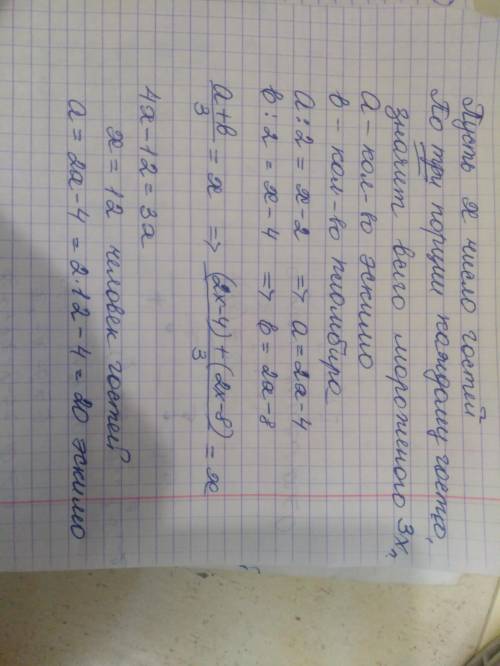 Пусть x число гостей
По три порции каждому гостю,
значит, всего мороженого 3x,
a - кол-во эскимо
b - кол-во пломбира
a : 2 = x - 2 => a = 2x - 4
b : 2 = x - 4 => b = 2x - 8
(a + b)/3 = x => ((2x - 4) + (2x - 8))/3 = x
4x - 12 = 3x
x = 12 человек гостей
a = 2x - 4 = 2·12 - 4 = 20 эскимо